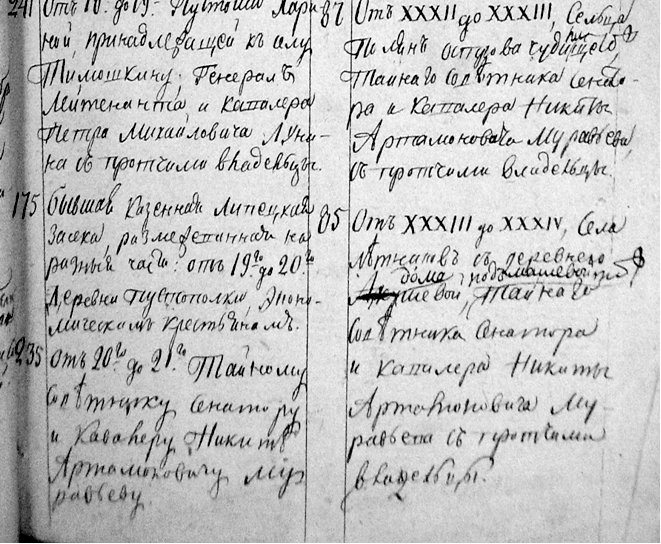 241 Отъ 18.го до 19.го Пустоши Лари
ной, принадлежащей къ селу
Тимошкину, Генералъ
Лейтенанта, и Кавалера
Петра Михайловича Луни-
на съ протчими владельцы.
175 бывшая Казенная Липецкая
Засека, размежеванная на
разныя части: отъ 19.го до 20.го
Деревни Пустополки, Эконо-
мическимъ крестьяномъ.
235 Отъ 20.го до 21.го Тайному
Совѣтнику Сенатору
и Кавалеру Никитѣ
Артамоновичу Мур
равьеву.
87 Отъ XXXII до XXXIII, Сельца
Полянъ
Тайнаго Совѣтника Сенато-
ра и Кавалера Никиты
Артамоновича Муравьева,
съ протчими владельцы.
85 Отъ XXXIII до XXXIV, Села
съ деревнею
Тайнаго
Совѣтника Сенатора
и Кавалера Никиты
Артамоновича Му-
равьева съ протчими
владельцы.